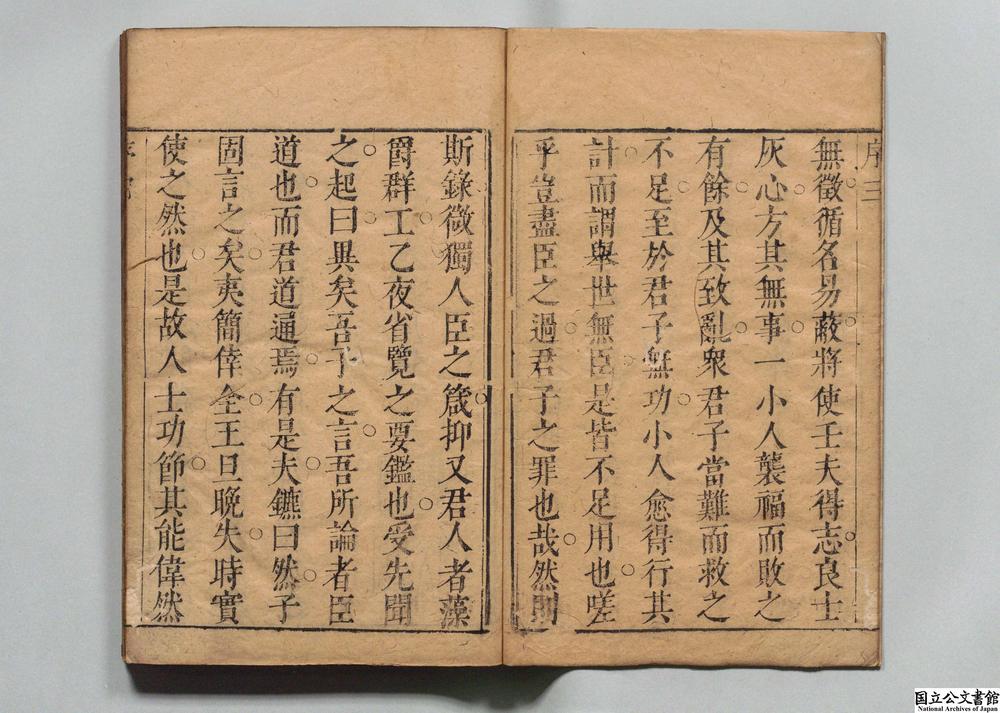 序三
無徵循名易蔽將使壬夫得志良士
灰心方其無事一小人襲福而敗之
有餘及其致亂衆君子當難而救之
不足至於君子無功小人愈得行其
計而謂舉世無臣是皆不足用也嗟
乎豈盡臣之過君子之罪也哉然則
斯錄徵獨人臣之箴抑又君人者藻
爵群工乙夜省覽之要鑑也受先聞
之起曰異矣吾子之言吾所論者臣
道也而君道逼焉有是夫鑣曰然子
固言之矣夷簡倖全王旦晚失時實
使之然也是故人士功節其能偉然
序
国立公文書館
National Archives of Japan